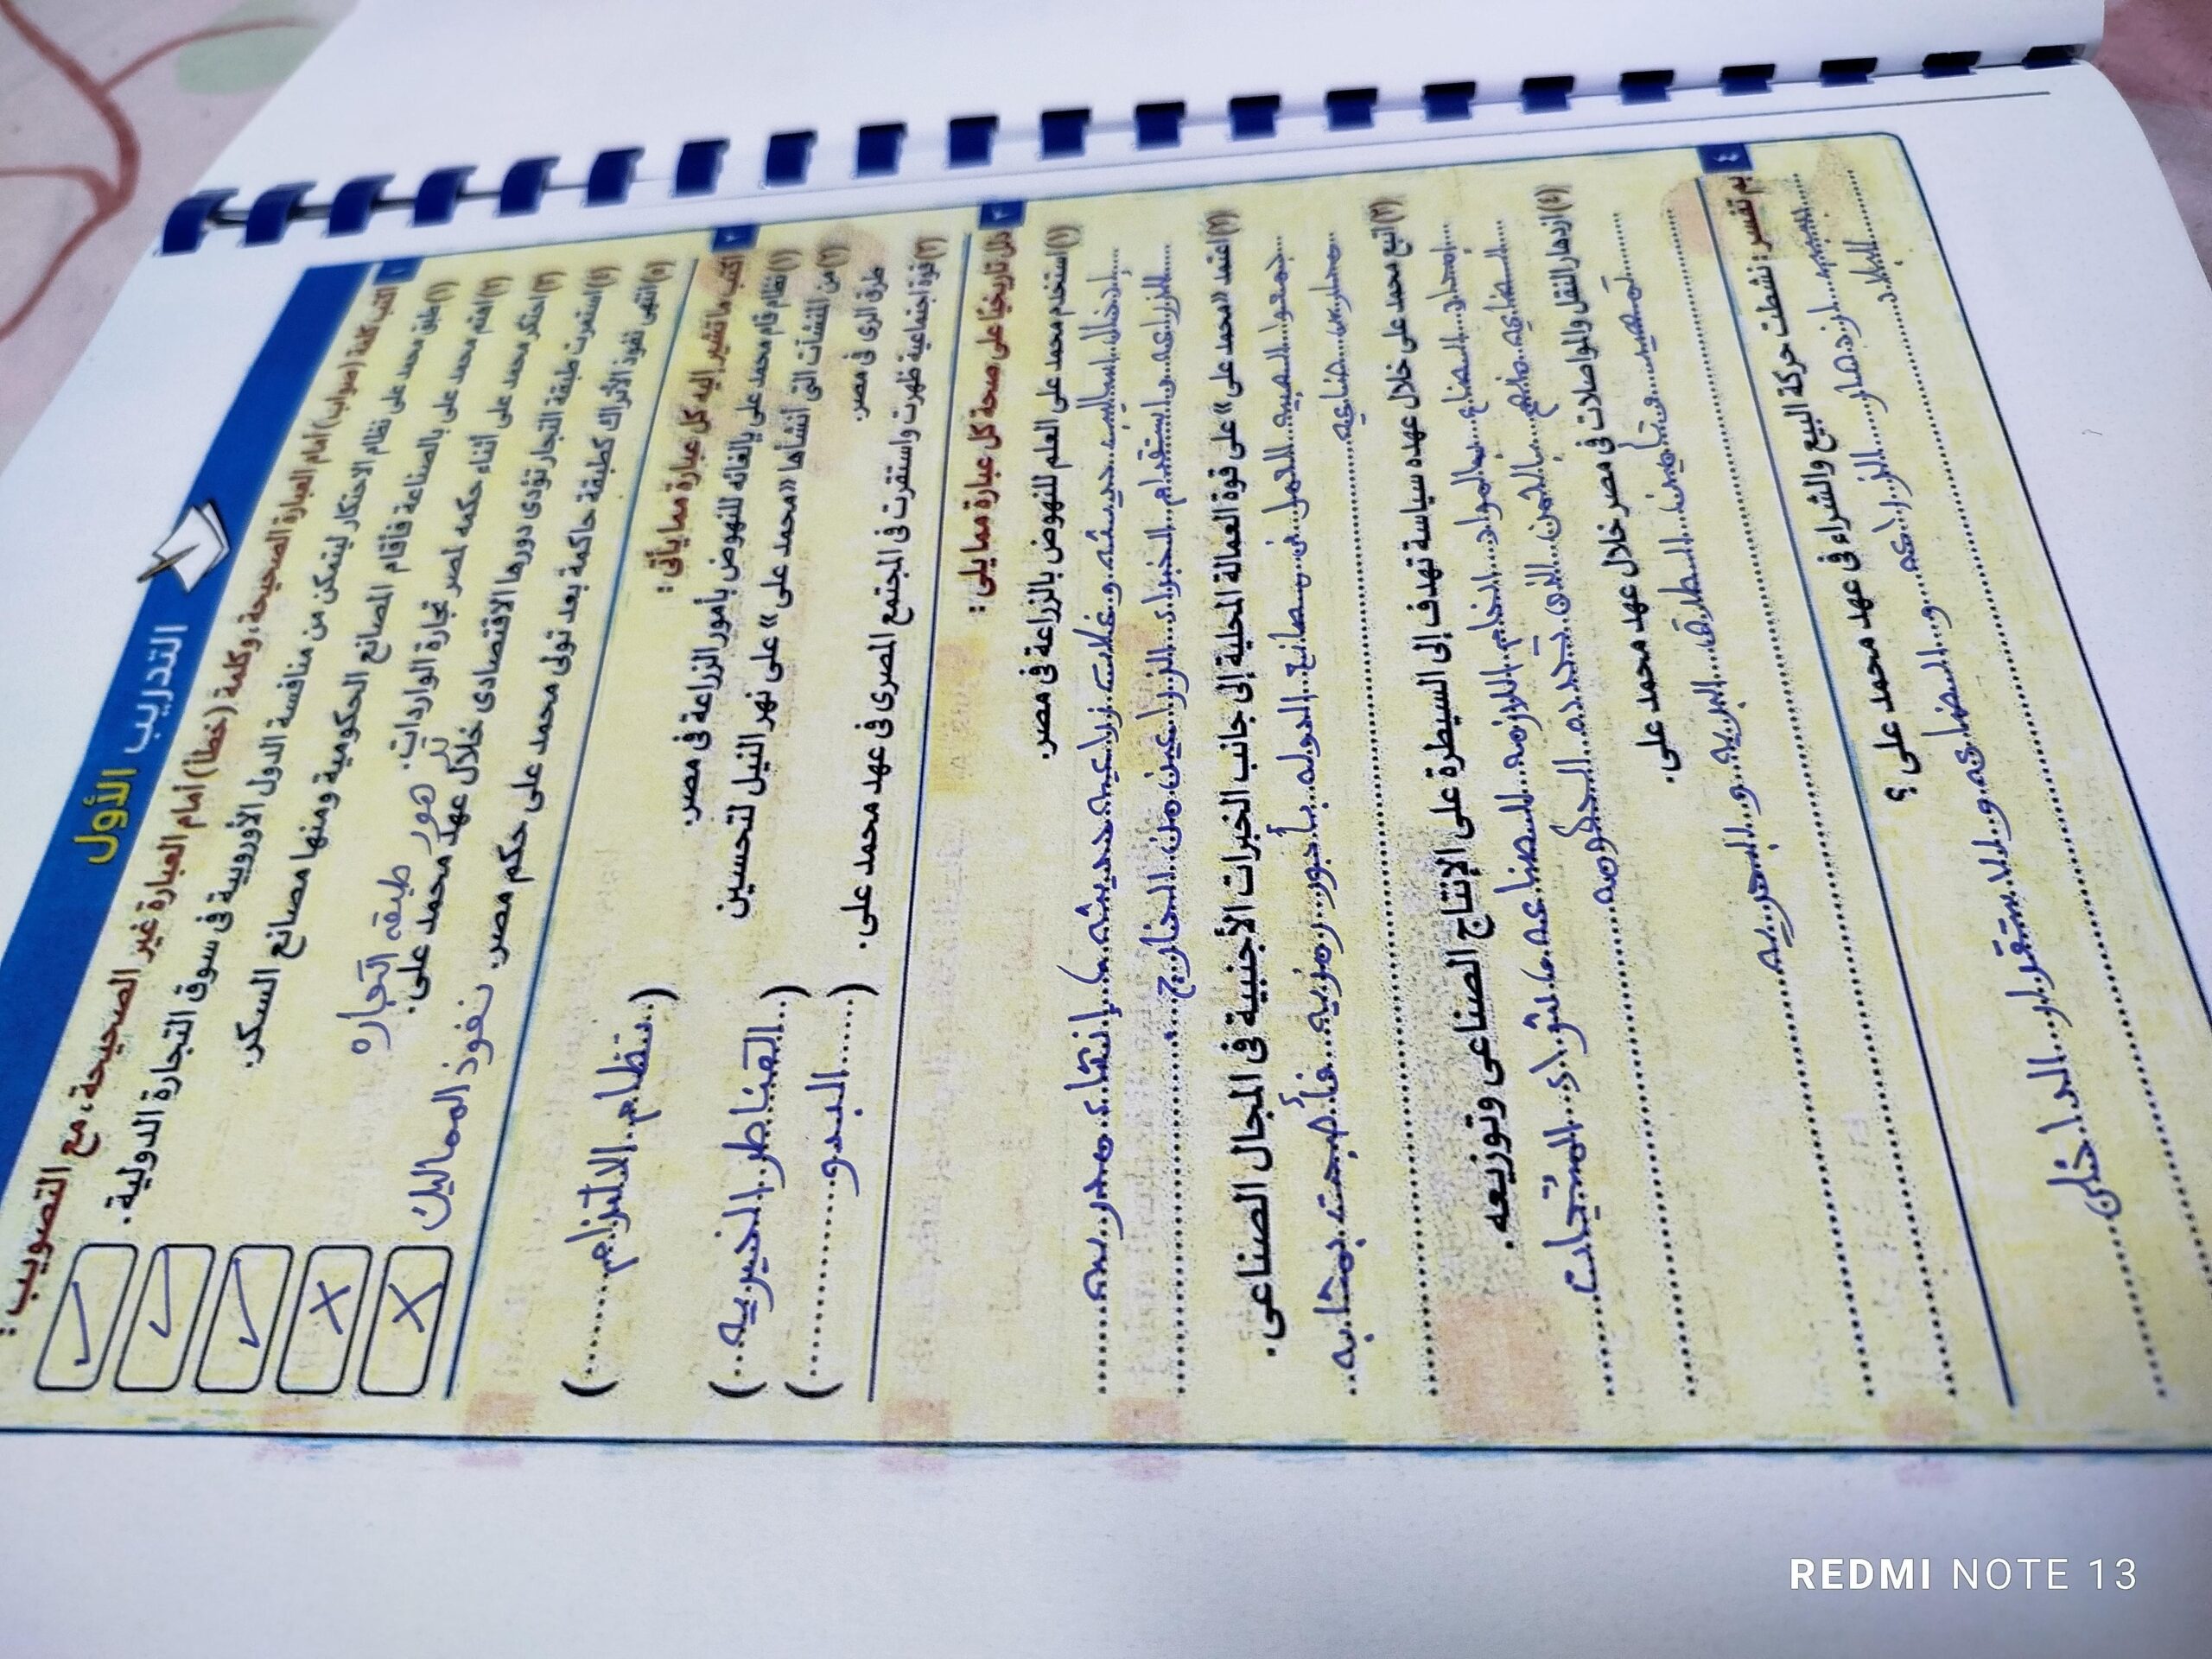 التدريب الأول
١ اكتب كلمة (صواب) أمام العبارة الصحيحة، وكلمة (خطأ) أمام العبارة غير الصحيحة، مع التصويب:
(١) طبق محمد على نظام الاحتكار ليتمكن من منافسة الدول الأوروبية فى سوق التجارة الدولية. ✓
(٢) اهتم محمد على بالصناعة فأقام المصانع الحكومية ومنها مصانع السكر. ✓
(٣) احتكر محمد على أثناء حكمه لمصر تجارة الواردات. ✓
طبقه التجاره
(٤) استمرت طبقة التجار تؤدى دورها الاقتصادى خلال عهد محمد على. ×
(٥) انتهى نفوذ الأتراك كطبقة حاكمة بعد تولى محمد على حكم مصر. نفوذ المماليك ×
٢ اكتب ما تشير إليه كل عبارة مما يأتى :
(١) نظام قام محمد على بإلغائه للنهوض بأمور الزراعة فى مصر. (نظام الالتزام)
(٢) من المنشآت التى أنشأها «محمد على» على نهر النيل لتحسين
طرق الرى فى مصر. (القناطر الخيريه)
(٣) قوة اجتماعية ظهرت واستقرت فى المجتمع المصرى فى عهد محمد على. (البدو)
٣ دلل تاريخيًا على صحة كل عبارة مما يلى :
(١) استخدم محمد على العلم للنهوض بالزراعة فى مصر.
إدخال اساليب حديثه و غلات زراعيه حديثه، إنشاء مدرسه
الزراعه واستقدام الخبراء الزراعين من الخارج
(٢) اعتمد «محمد على» على قوة العمالة المحلية إلى جانب الخبرات الأجنبية فى المجال الصناعى.
جمعوا الصبيه للعمل فى مصانع الدوله بأجور رمزيه فأصبحت بمثابه
مدارس صناعيه
(٣) اتبع محمد على خلال عهده سياسة تهدف إلى السيطرة على الإنتاج الصناعى وتوزيعه.
إمداد الصناع بالمواد الخام اللازمه للصناعه، شراء المنتجات
الصناعيه منهم بالثمن الذى تحدده الحكومه
(٤) ازدهار النقل والمواصلات فى مصر خلال عهد محمد على.
تمهيد وتأمين الطرق البريه و البحريه
٤ بم تفسر : نشطت حركة البيع والشراء فى عهد محمد على ؟
بسبب ازدهار الزراعه و الصناعه والاستقرار الداخلى
للبلاد
REDMI NOTE 13